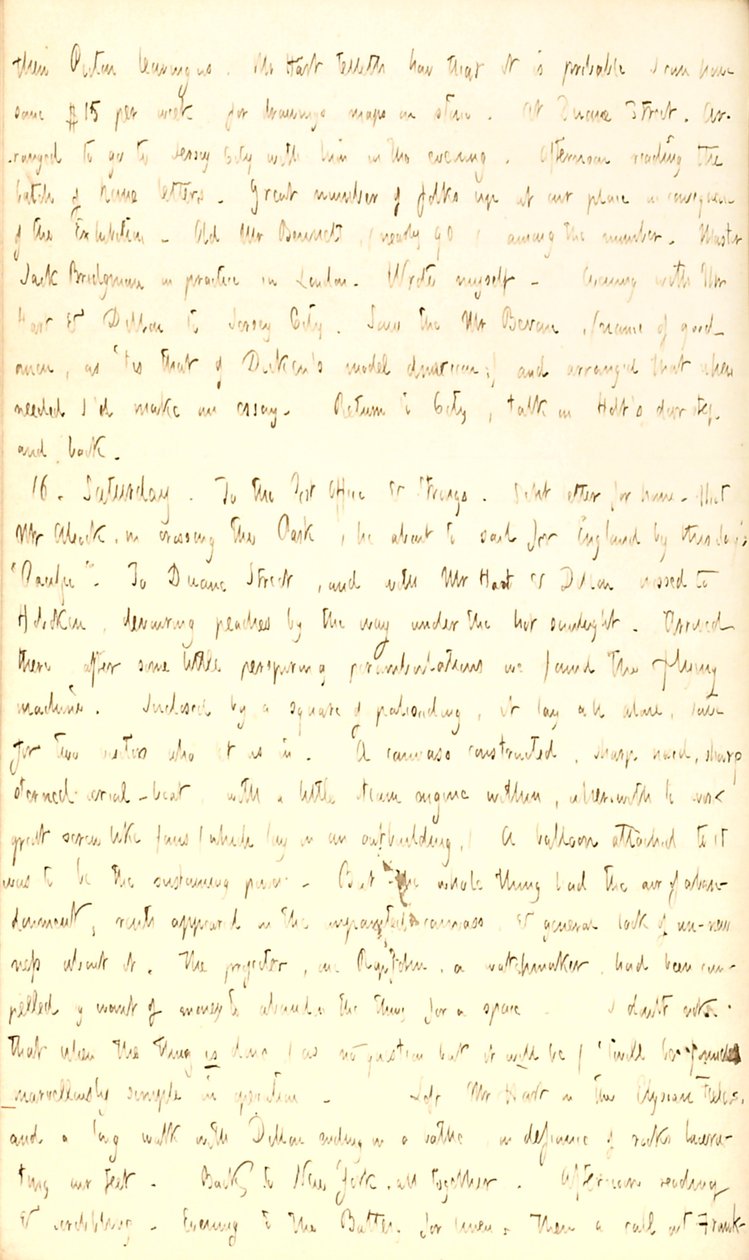 then Parton leaving us. Mr Hart telleth how that it is probable I can have
some $15 per week for drawings maps on stone. At Duane Street. Ar-
ranged to go to Jersey City with him in the evening. Afternoon reading the
batch of home letters. Great number of folks up at our place in consequence
of the Exhibition. Old Mr Bennett, (nearly 90) among the number. Master
Jack Bridgman in practice in London. Wrote myself. Evening with Mr
Hart & Dillon to Jersey City. Saw the Mr Bevan, (name of good
omen, as 'tis that of Dicken's model American;) and arranged that when
needed I'd make an essay. Return to City, talk on Holt's door step
and back.
16. Saturday. To the Post Office & Strongs. Sent letter for home. Met
Mr Alcock, in crossing the Park, he about to sail for England by this day's
"Pacific". To Duane Street, and with Mr Hart & Dillon crossed to
Hoboken, devouring peaches by the way under the hot sunlight. Arrived
there, after some little perspiring perambulations we found the flying
machine. Inclosed by a square of palisading, it lay all alone, save
for two visitors who let us in. A canvass constructed, sharp nosed, sharp
sterned aerial-boat, with a little steam engine within, wherewith to work
great screw like fans (which lay in an outbuilding,) A balloon attached to it
was to be the sustaining power. But the whole thing had the air of aban-
donment, rents appeared in the unpainted canvass, & general look of un-new
ness about it. The projector, one Robjohn, a watchmaker, had been com-
pelled by want of money to abandon the thing for a space. I doubt not
that when the thing is done (as no question but it will be) 'twill be found
marvellously simple in operation. Left Mr Hart in the Elysian Fields,
and a long walk with Dillon ending in a bathe, in defiance of rocks lacera-
ting our feet. Back to New York, all together. Afternoon reading
& scribbling. Evening to the Battery for linen. Then a call at Frank-